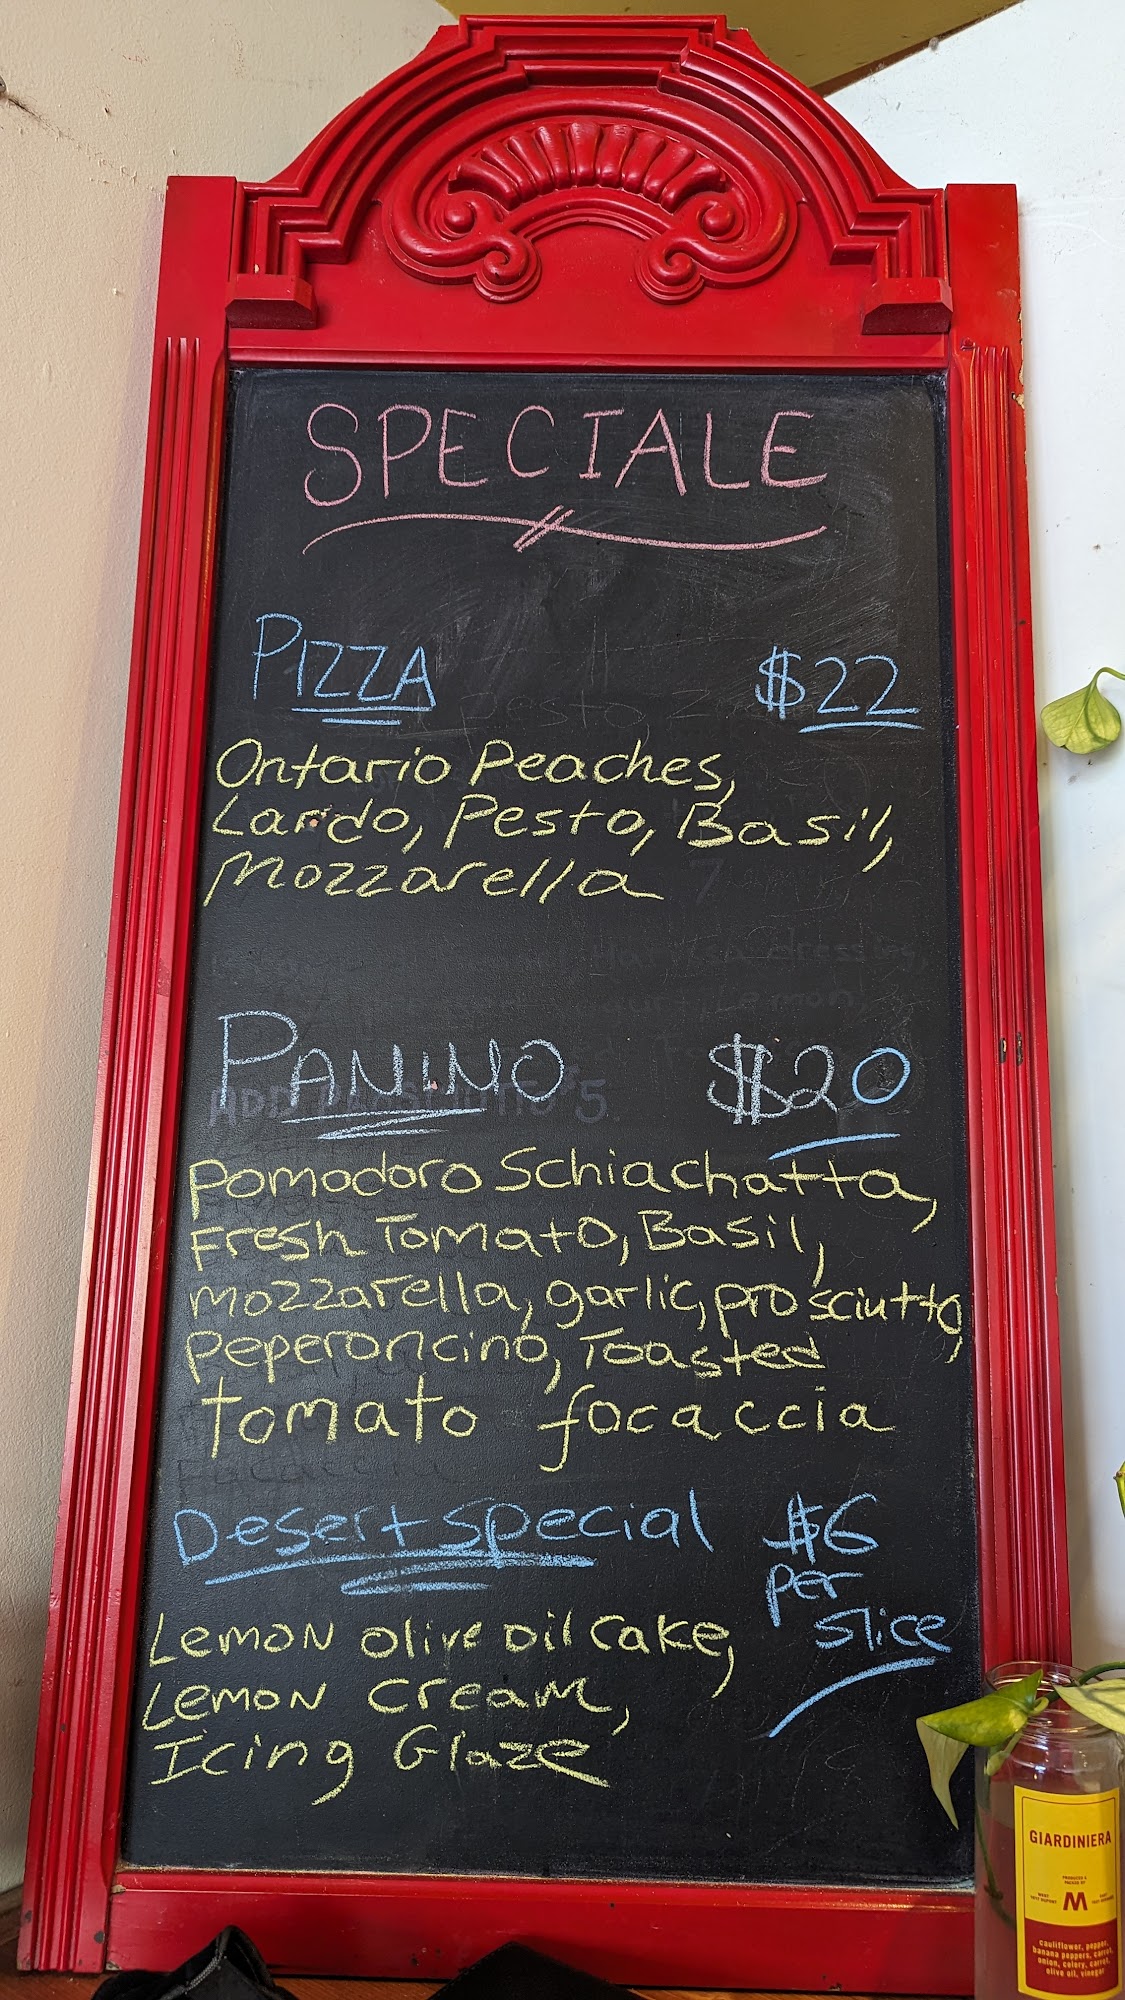 SPECIALE
PIZZA $22
Ontario Peaches,
Lardo, Pesto, Basil,
Mozzarella
PANINO $20
ADD PROSCIUTTO $5.
Pomodoro Schiachatta,
Fresh Tomato, Basil,
mozzarella, garlic, prosciutto,
peperoncino, Toasted
Tomato focaccia
Focaccia
Desert special $6
per
slice
Lemon olive oil cake,
Lemon cream,
Icing Glaze
GIARDINIERA
PRODUCED &
PACKED BY
M
cauliflower, pepper,
banana peppers, carrot,
onion, celery, carrot,
olive oil, vinegar